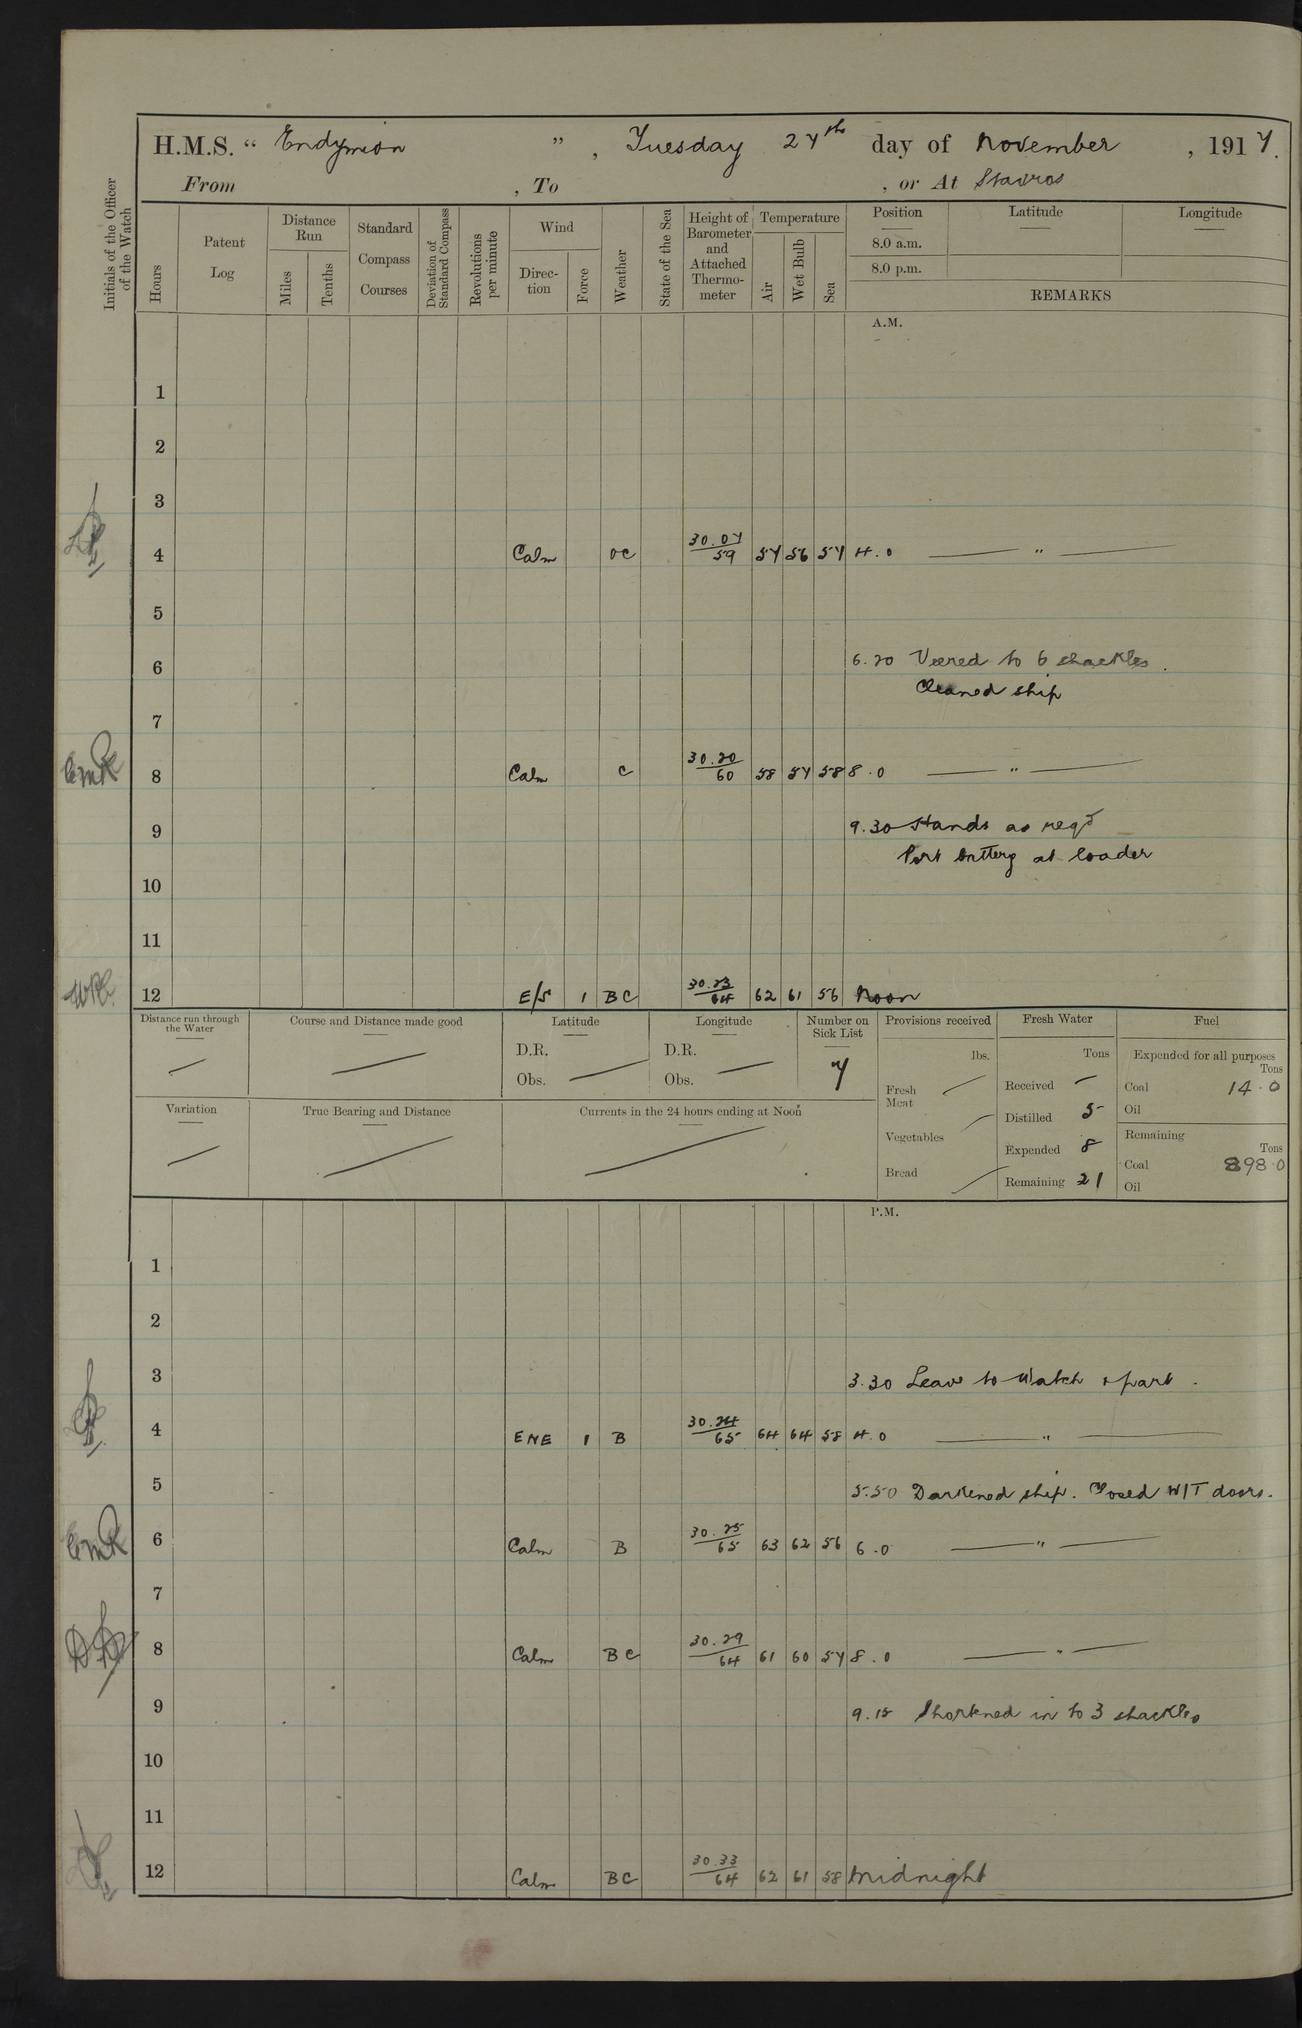 H.M.S. “ Endymion ” , Tuesday 27th day of November , 1917.
From , To , or At Stavros
Initials of the Officer of the Watch
Hours
Patent Log
Distance Run
Miles
Tenths
Standard Compass Courses
Deviation of Standard Compass
Revolutions per minute
Wind
Direction
Force
Weather
State of the Sea
Height of Barometer and Attached Thermometer
Temperature
Air
Wet Bulb
Sea
Position Latitude Longitude
8.0 a.m.
8.0 p.m.
REMARKS
A.M.
1
2
3
4 Calm OC 30.07/59 57 56 57 4.0 — " —
5
6 6.20 Veered to 6 shackles.
Cleaned ship
7
8 Calm C 30.20/60 58 57 58 8.0 — " —
9 9.30 Hands as reqd
Port battery at loader
10
11
12 E/S 1 BC 30.23/64 62 61 56 Noon
Distance run through the Water
Course and Distance made good
Latitude
D.R.
Obs.
Longitude
D.R.
Obs.
Number on Sick List
7
Variation
True Bearing and Distance
Currents in the 24 hours ending at Noon
Provisions received
lbs.
Fresh Meat
Vegetables
Bread
Fresh Water
Tons
Received —
Distilled 5
Expended 8
Remaining 21
Fuel
Expended for all purposes
Tons
Coal 14.0
Oil
Remaining
Tons
Coal 898.0
Oil
P.M.
1
2
3 3.30 Leave to Watch & part.
4 ENE 1 B 30.24/65 64 64 58 4.0 — " —
5 5.50 Darkened ship. Closed W/T doors.
6 Calm B 30.25/65 63 62 56 6.0 — " —
7
8 Calm BC 30.29/64 61 60 57 8.0 — " —
9 9.15 Shortened in to 3 shackles
10
11
12 Calm BC 30.33/64 62 61 58 Midnight